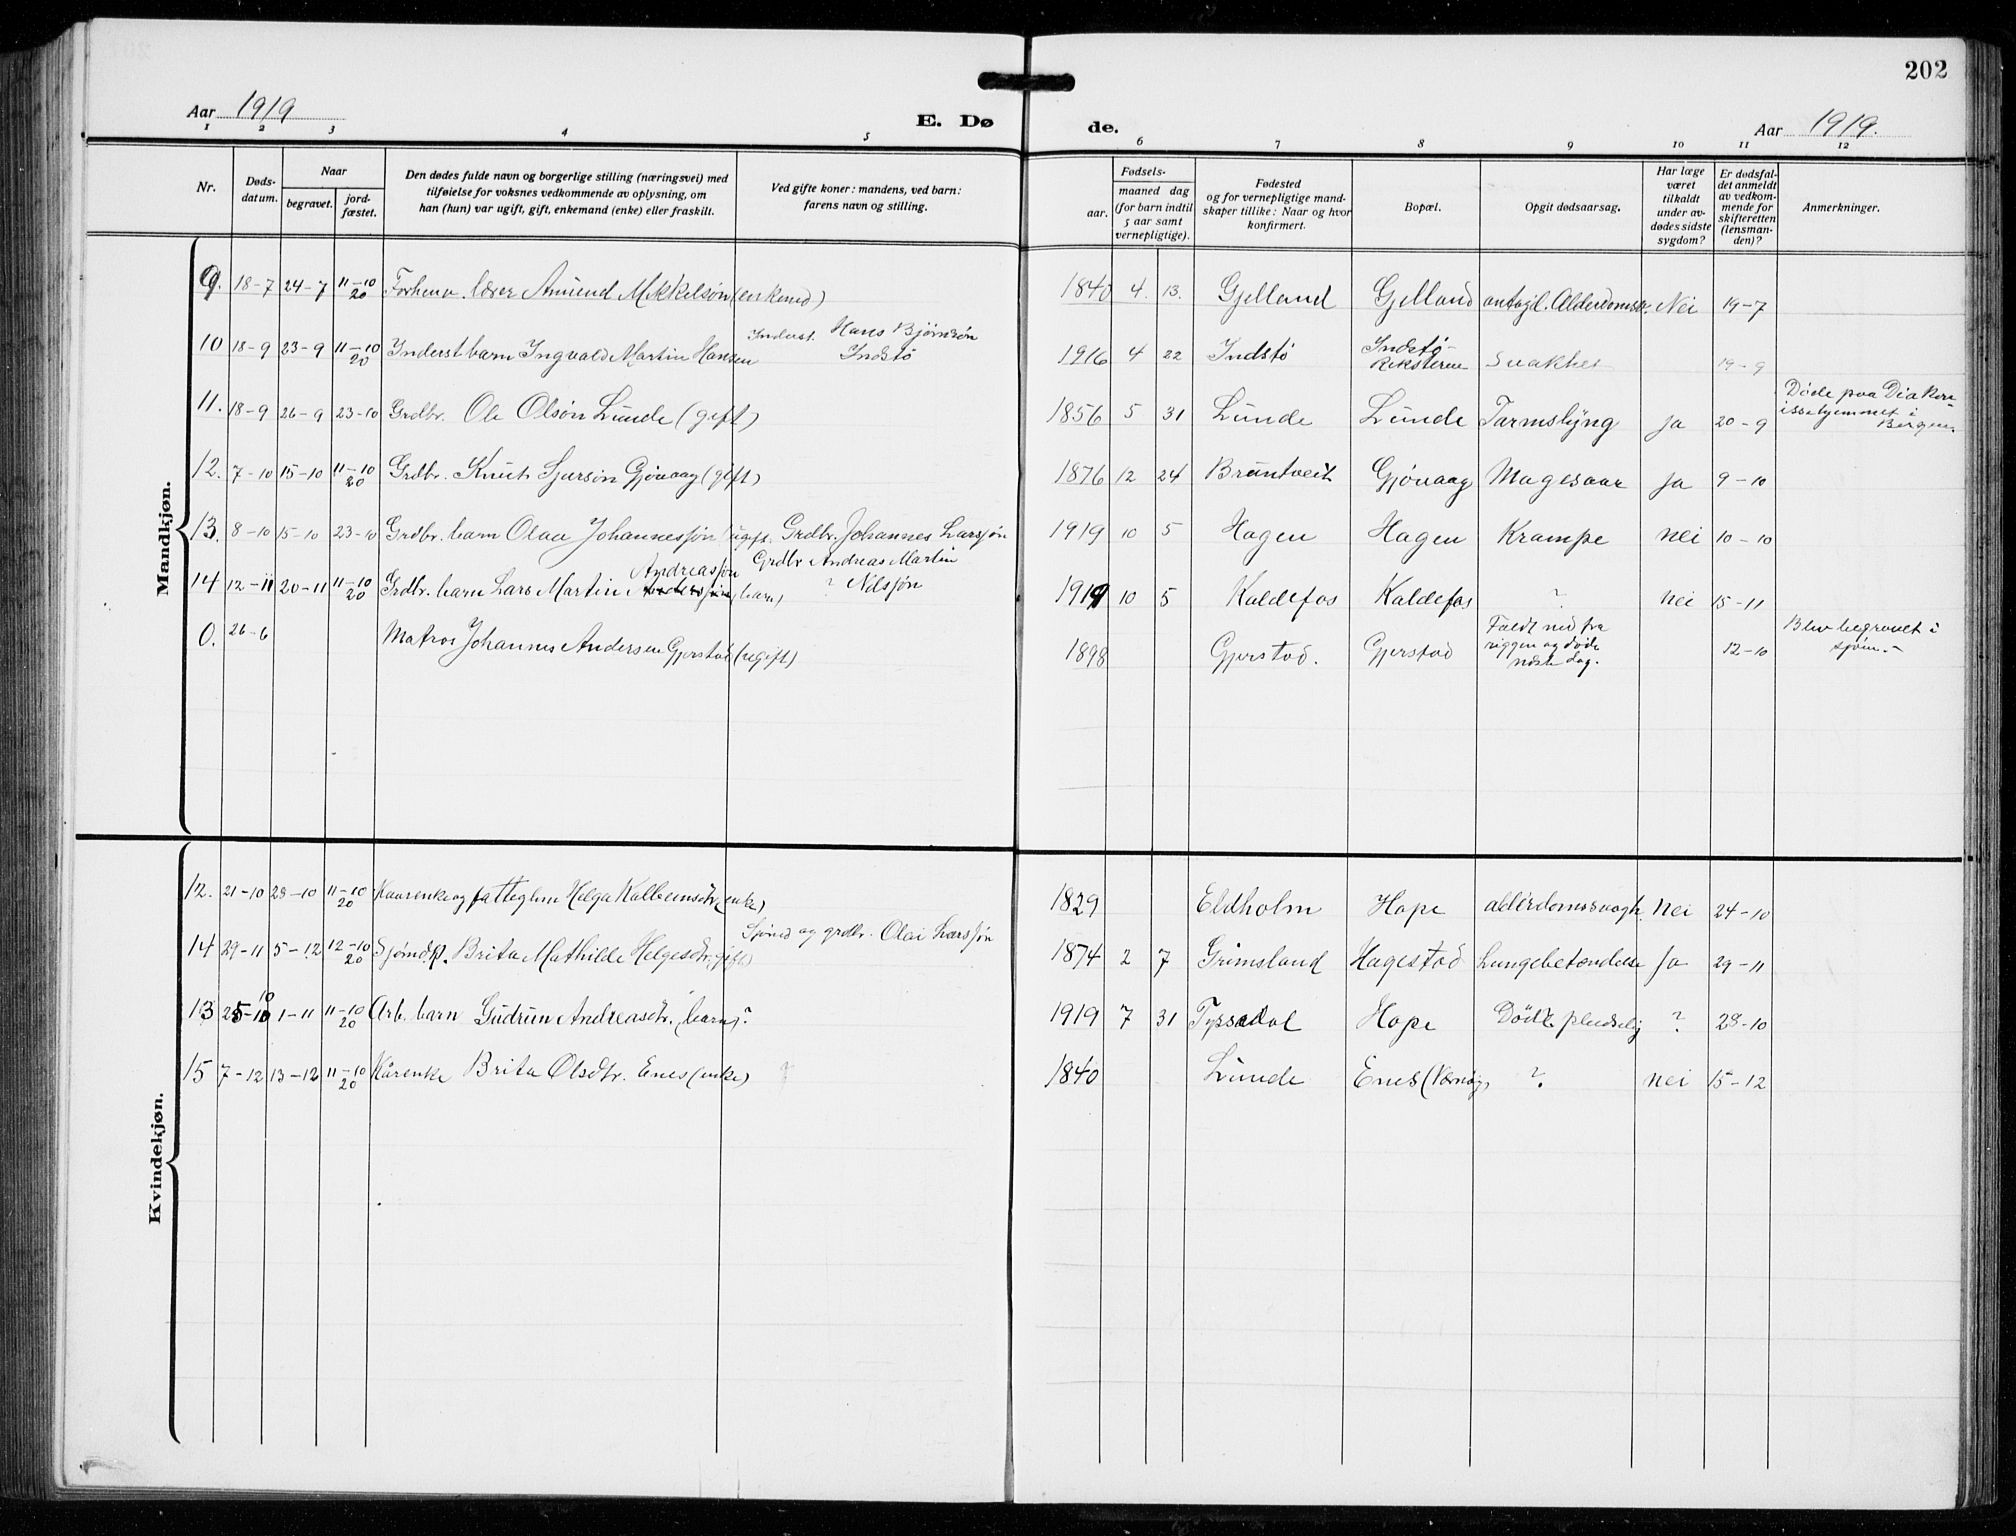 202
Aar 1919
E. Dø
de.
Aar 1919.
1 2 3 4 5 6 7 8 9 10 11 12
Nr.
Døds-
datum.
Naar
begravet.
jord-
fæstet.
Den dødes fulde navn og borgerlige stilling (næringsvei) med
tilføielse for voksnes vedkommende av oplysning, om
han (hun) var ugift, gift, enkemand (enke) eller fraskilt.
Ved gifte koner: mandens, ved barn:
farens navn og stilling.
Fødsels-
aar.
maaned dag
(for barn indtil
5 aar samt
vernepligtige).
Fødested
og for vernepligtige mand-
skaper tillike: Naar og hvor
konfirmert.
Bopæl.
Opgit dødsaarsag.
Har læge
været
tilkaldt
under av-
dødes sidste
sygdom?
Er dødsfal-
det anmeldt
av vedkom-
mende for
skifteretten
(lensman-
den)?
Anmerkninger.
Mandkjøn.
9. 18-7 24-7 11-10 20 Forhenv. lærer Amund Mikkelsøn (enkemd) 1840 4. 13. Gjelland Gjelland antagl. Alderdomsv. Nei 19-7
10 18-9 23-9 11-10 20 Inderst barn Ingvald Martin Hansen Inderst. Hans Bjørnsøn Indstø 1916 4 22 Indstø Indstø- Reksteren Svakhet 19-9
11. 18-9 26-9 23-10 Grdbr. Ole Olsøn Lunde (gift) 1856 5 31 Lunde Lunde Tarmslyng ja 20-9 Døde paa Diakon- issehjemmet i Bergen.
12. 7-10 15-10 11-10 20 Grdbr. Knut Sjursøn Gjøvaag (gift) 1876 12 24 Bruntveit Gjøvaag Magesaar ja 9-10
13. 8-10 15-10 23-10 Grdbr. barn Olav Johannessøn (ugift. Grdbr. Johannes Larssøn 1919 10 5 Hagen Hagen Krampe nei 10-10
14 12-11 20-11 11-10 20 Grdbr. barn Lars Martin Andreassøn (barn) Grdbr Andreas Martin ? Nilssøn 1919 10 5 Kaldefos Kaldefos ? nei 15-11
0. 26-6 Matros Johannes Andersen Gjerstad (ugift) 1898 Gjerstad. Gjerstad Faldt ned fra riggen og døde næste dag. 12-10 Blev begravet i sjøen.-
Kvindekjøn.
12. 21-10 28-10 11-10 20 Kaarenke og fatteglem Helga Kolbeinsdtr. (enke) 1829 Eldholm Hope alderdomssvagh. Nei 24-10
14 29-11 5-12 12-10 20 Sjømd.k. Brita Mathilde Helgesdtr. gift) Sjømd og grdbr. Olai Larssøn 1874 2 7 Grimsland Hagestad Lungebetændelse Ja 29-11
13 25-10 1-11 11-10 20 Arb. barn Gudrun Andreasdtr. (barn) ? 1919 7 31 Tyssedal Hope Døde pludselig ? 28-10
15 7-12 13-12 11-10 20 Kårenke Brita Olsdtr. Enes (enke) ? 1840 Lunde Enes (Varnøy) ? nei 15-12